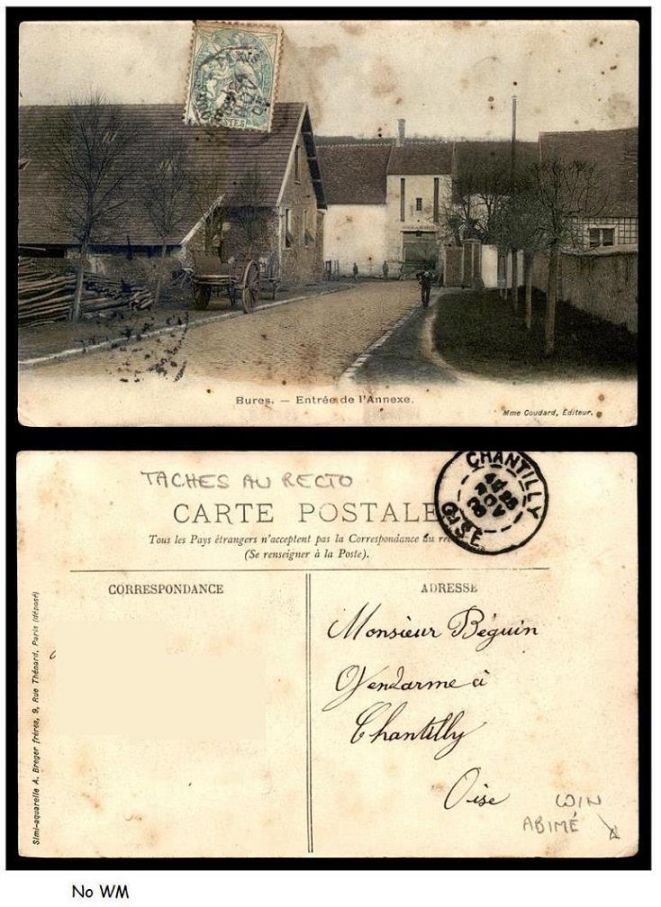 Bures. — Entrée de l'Annexe.
Mme Coudard, Éditeur.
TACHES AU RECTO
CHANTILLY
OISE
CARTE POSTALE
Tous les Pays étrangers n'acceptent pas la Correspondance au
(Se renseigner à la Poste).
CORRESPONDANCE
ADRESSE
Simi-aquarelle A. Breger frères, 9, Rue Thénard, Paris (déposé)
Monsieur Béguin
Gendarme à
Chantilly
Oise
COIN
ABIMÉ
No WM